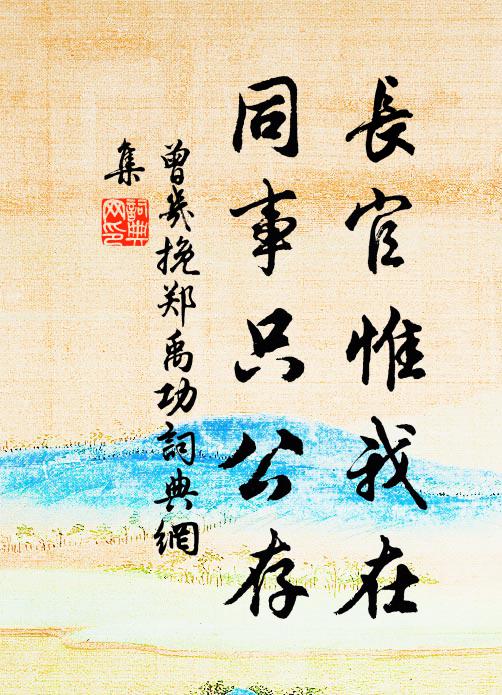 長官惟我在
同事只公存
曾幾挽郑禹功詞典網
集
詞典
网印